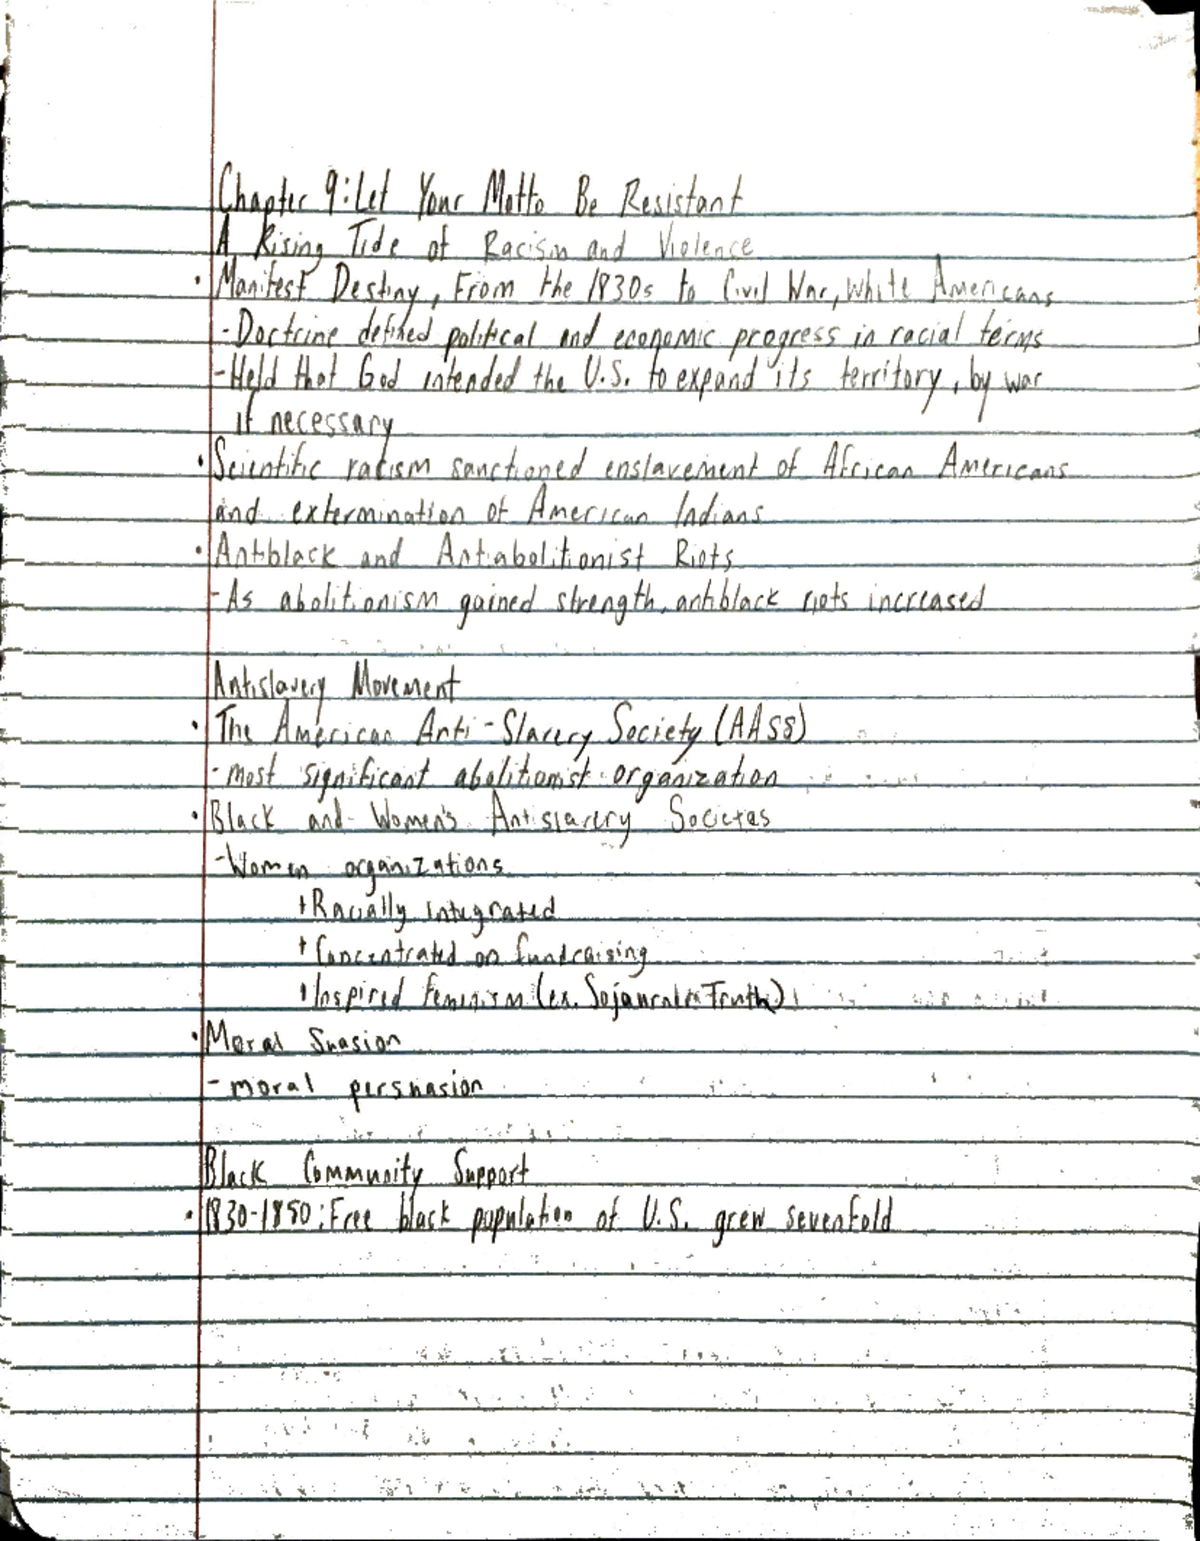 Chapter 9: Let Your Motto Be Resistant
A Rising Tide of Racism and Violence
• Manifest Destiny, From the 1830s to Civil War, white Americans
- Doctrine defined political and economic progress in racial terms
- Held that God intended the U.S. to expand its territory, by war
if necessary
• Scientific racism sanctioned enslavement of African Americans
and extermination of American Indians
• Antiblack and Antiabolitionist Riots
- As abolitionism gained strength, antiblack riots increased
Antislavery Movement
• The American Anti-Slavery Society (AASS)
- most significant abolitionist organization
• Black and Women's Antislavery Societies
- Women organizations
+ Racially integrated
+ Concentrated on fundraising
+ Inspired feminism (ex. Sojourner Truth)
• Moral Suasion
- moral persuasion
Black Community Support
• 1830-1850: Free black population of U.S. grew sevenfold